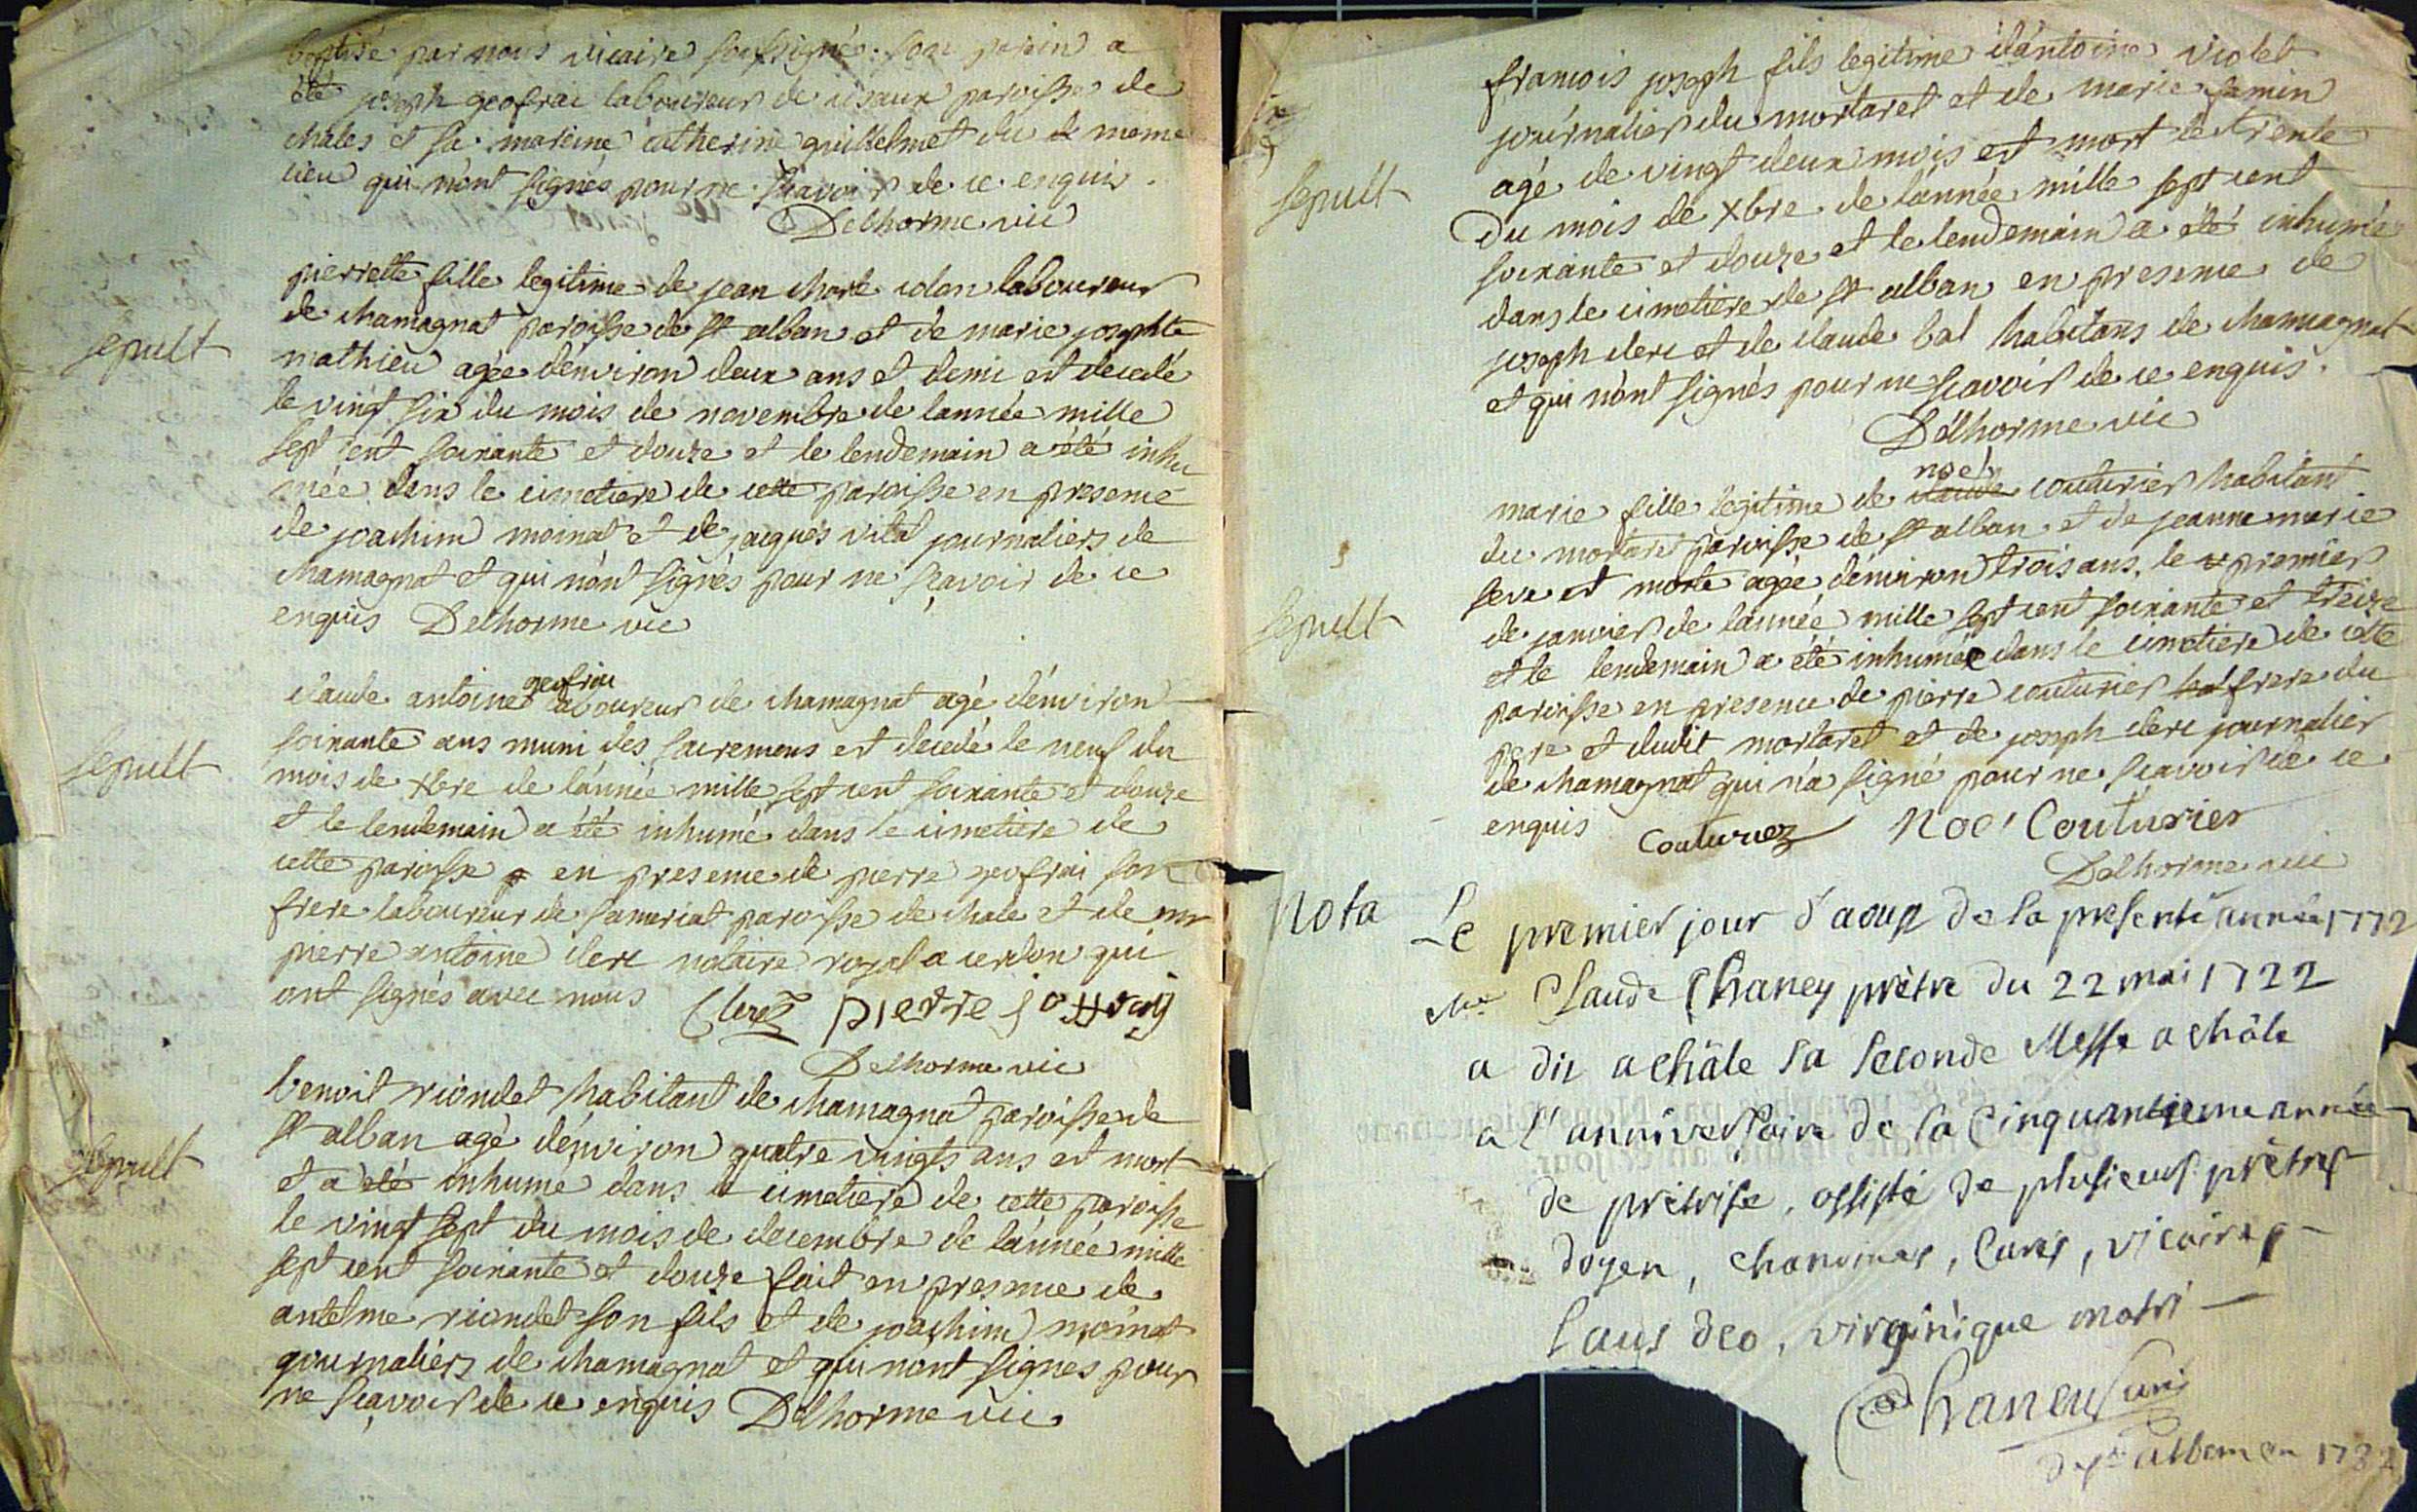 baptisé par nous vicaire soussigné. son parin a
été joseph geofrai laboureur de isaux paroisse de
chales et sa mareine catherine guillelmet du de meme
lieu qui n'ont signés pour ne scavoir de ce enquis.
Delhorme vic
sepult
pierrette fille legitime de jean charle colon laboureur
de chamagnat paroisse de st alban et de marie josephte
mathieu agée d'environ deux ans et demi est decedé
le vingt six du mois de novembre de l'année mille
sept cent soixante et douze et le lendemain a été inhu
mée dans le cimetiere de cette paroisse en presence
de joachim moinat et de jacques vital journaliers de
chamagnat et qui n'ont signés pour ne sçavoir de ce
enquis Delhorme vic
sepult
geofrai
claude antoine laboureur de chamagnat agé d'environ
soixante ans muni des sacremens est decedé le neuf du
mois de xbre de l'année mille sept cent soixante et douze
et le lendemain a été inhumé dans le cimetiere de
cette paroisse en presence de pierre geofrai son
frere laboureur de samériat paroisse de chale et de mr
pierre antoine clerc notaire royal a cerdon qui
ont signés avec nous Clerc pierre joffray
Delhorme vic
sepult
benoit riondet habitant de chamagnat paroisse de
st alban agé d'environ quatre vingts ans est mort
et a été inhumé dans le cimetiere de cette paroisse
le vingt sept du mois de decembre de l'année mille
sept cent soixante et douze fait en presence de
antelme riondet son fils et de joachim moinat
journaliers de chamagnat et qui n'ont signés pour
ne sçavoir de ce enquis Delhorme vic
sepult
francois joseph fils legitime d'antoine violet
journalier du mortaret et de marie famin
agé de vingt deux mois est mort le trente
Du mois de xbre de l'année mille sept cent
soixante et douze et le lendemain a été inhumé
dans le cimetiere de st alban en presence de
joseph clerc et de claude bal habitans de chamagnat
et qui n'ont signés pour ne scavoir de ce enquis.
Delhorme vic
sepult
noel
marie fille legitime de claude couturier habitant
du mortaret paroisse de st alban et de jeanne marie
seve est morte agée d'environ trois ans, le premier
de janvier de l'année mille sept cent soixante et treize
et le lendemain a été inhumée dans le cimetiere de cette
paroisse en presence de pierre couturier frere du
pere et dudit mortaret et de joseph clerc journalier
de chamagnat qui n'a signé pour ne scavoir de ce
enquis Couturier Noel Couturier
Delhorme vic
Nota
Le premier jour d'aoust de la presente année 1772
Mre Claude Chaney prètre du 22 mai 1722
a dit a Châle sa seconde Messe a Châle
a l'anniversaire de la Cinquantieme année
de prètrise, assisté de plusieurs prètres
doyen, chanoines, Curés, vicaires
Laus deo, virginique matri
Chaney Curé
de st alban en 1732